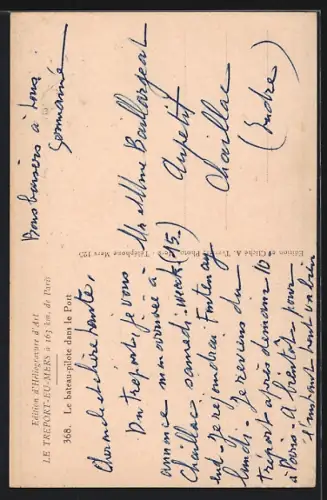 Edition d'Héliogravure d'Art
LE TREPORT-EU-MERS à 163 km. de Paris
368. Le bateau-pilote dans le Port
Cher oncle et chère tante,
Du Tréport, je vous
annonce mon arrivée à
Chaillac samedi-week (15)
end - Je rejoindrai Fontenay
lundi - Je reviens du
Tréport après demain 10
à Paris - A bientôt pour
l'instant tout va bien
Bons baisers à tous
Germaine
Edition et Cliché A.
Téléphone Mers 125
Mr Mme Baillargeat
Aupetit
Chaillac
(Indre)